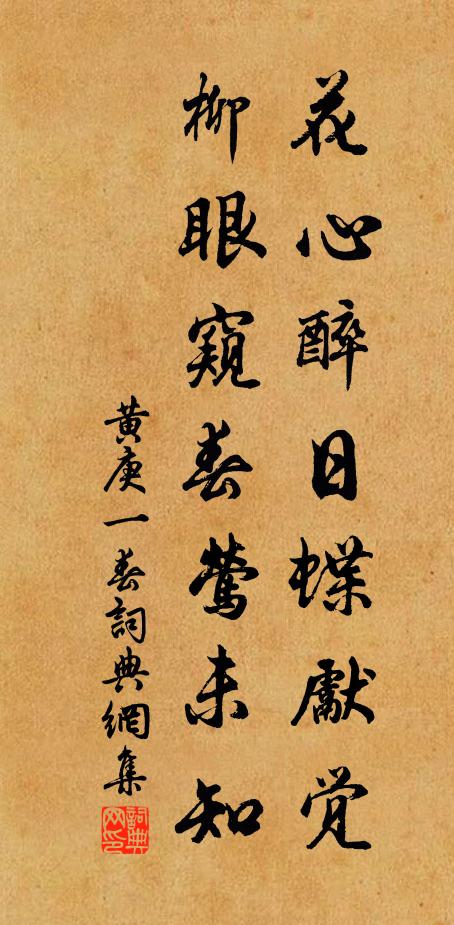 花心醉日蝶獻觉
柳眼窺春鶯未知
黄庚一春詞典網集
詞典网印